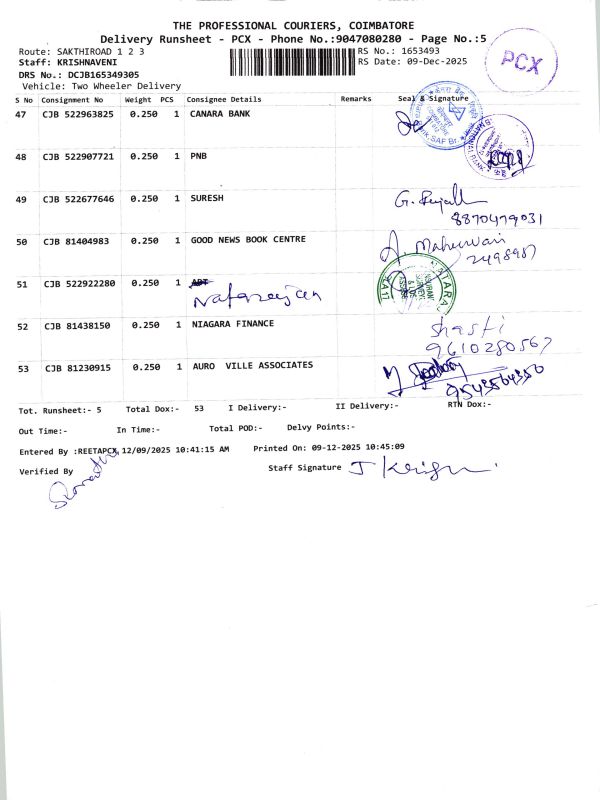 THE PROFESSIONAL COURIERS, COIMBATORE
Delivery Runsheet - PCX - Phone No.:9047080280 - Page No.:5
Route: SAKTHIROAD 1 2 3 RS No.: 1653493
Staff: KRISHNAVENI RS Date: 09-Dec-2025
DRS No.: DCJB165349305
Vehicle: Two Wheeler Delivery
PCX
S No Consignment No Weight PCS Consignee Details Remarks Seal & Signature
47 CJB 522963825 0.250 1 CANARA BANK
48 CJB 522907721 0.250 1 PNB
49 CJB 522677646 0.250 1 SURESH
8870479031
50 CJB 81404983 0.250 1 GOOD NEWS BOOK CENTRE
A. Maheswari
2498987
51 CJB 522922280 0.250 1 ART
Natarajan
52 CJB 81438150 0.250 1 NIAGARA FINANCE
Shasti
9610280567
53 CJB 81230915 0.250 1 AURO VILLE ASSOCIATES
9543564350
Tot. Runsheet:- 5 Total Dox:- 53 I Delivery:- II Delivery:- RTN Dox:-
Out Time:- In Time:- Total POD:- Delvy Points:-
Entered By :REETAPCX,12/09/2025 10:41:15 AM Printed On: 09-12-2025 10:45:09
Verified By Staff Signature